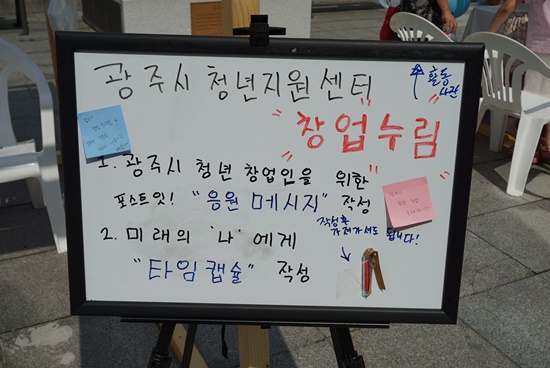 광주시 청년지원센터
활동
사관
"창업누림"
1. 광주시 청년 창업인을 위한
포스트잇! "응원 메시지" 작성
2. 미래의 '나'에게
작성후
가져가셔도 됩니다!
"타임캡슐" 작성